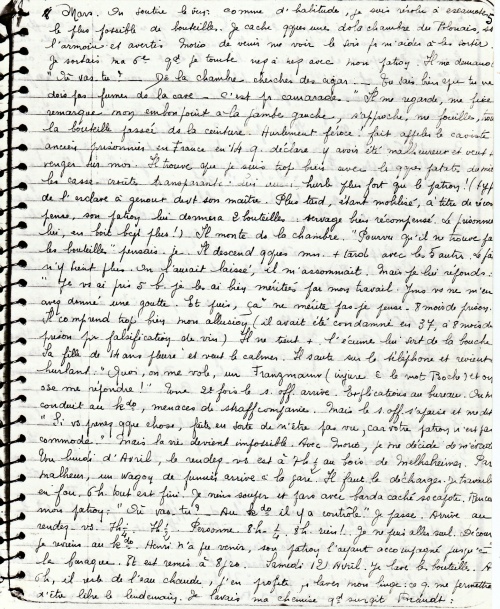 8 Mars. On soutire le vin. Comme d'habitude, je suis résolu à escamoter
le plus possible de bouteilles. Je cache qques unes ds la chambre du Polonais, ds
l'armoire et avertis Morio de venir me voir le soir pr m'aider à les sortir.
Je sortais ma 6e qd je tombe nez à nez avec mon patron. Il me demande:
"Où vas tu? De la chambre chercher des cigar. Tu sais bien que tu ne
dois pas fumer ds la cave. C'est pr camarade." Il me regarde, me fixe,
remarque mon embonpoint à la jambe gauche, s'approche, me fouille, trouve
la bouteille passée ds la ceinture. Hurlement féroce! fait appeler le caviste
ancien prisonnier en France en 14 q. déclare y avoir été malheureux et veut se
venger sur moi. Il trouve que je suis trop bien avec les qques patates de mie
les casse-croûte transparents hurle plus fort que le patron! (type
de l'esclave à genout devt son maître. Plus tard, étant mobilisé, à titre de récom
pense, son patron lui donnera 2 bouteilles. servage bien récompensé. Le prisonnier
lui, en boit bcp plus!) Il monte ds la chambre. "Pourvu qu'il ne trouve pas
les bouteilles" pensais-je. Il descend qques mn. + tard avec les 5 autres. Là
n'y tient plus. On l'aurait laissé, il m'assommait. Mais je lui réponds:
"Je vs ai pris 5 b. je les ai bien méritées par mon travail. Vous ne m'en
avez donné une goutte. Et puis, ça ne mérite pas je pense 8 mois de prison."
Il comprend trop bien mon allusion (il avait été condamné en 37, à 8 mois de
prison pr falsification de vin.) Il ne tient +. l'écume lui sort de la bouche.
Sa fille de 14 ans pleure et veut le calmer. Il saute sur le téléphone et revient
hurlant: "Quoi, on me vole, un Franzmann (injure c. le mot Boche) et on
ose me répondre!" Une 2e fois le s. off. arrive. Explications au bureau. On me
conduit au kdo, menaces de straffcompanie. Mais le s. off. s'apaise et me dit
"Si vs prenez qque chose, faites en sorte de n'être pas vu, car votre patron n'est pas
commode". Mais la vie devient impossible. Avec Inout, je me décide de m'évader
Un lundi d'Avril, le rendez-vs est à 7h ½ au bois de Melksheimer. Par
malheur, un wagon de fumier arrive à la gare. Il faut le décharger. Je travaille
en fou, 6h. tout est fini. Je viens souper et pars avec barda caché ss capote.
mon patron: "Où vas-tu? Au kdo il y a contrôle." Je passe. Arrive au
rendez-vs. 7h ½ 7h ¾ Personne. 8h. 8h ¼ rien!. Je ne fuis aller seul.
je reviens au kdo. Henri n'a pu venir, son patron l'ayant accompagné jusqu'à
la baraque. Et est remis à 8j20. Samedi 12 Avril. Je lave les bouteilles. A
6h, il reste de l'eau chaude, j'en profite pr laver mon linge: ce q. me permettra
d'être libre le lendemain. Je lavais ma chemise qd surgit Fricault: